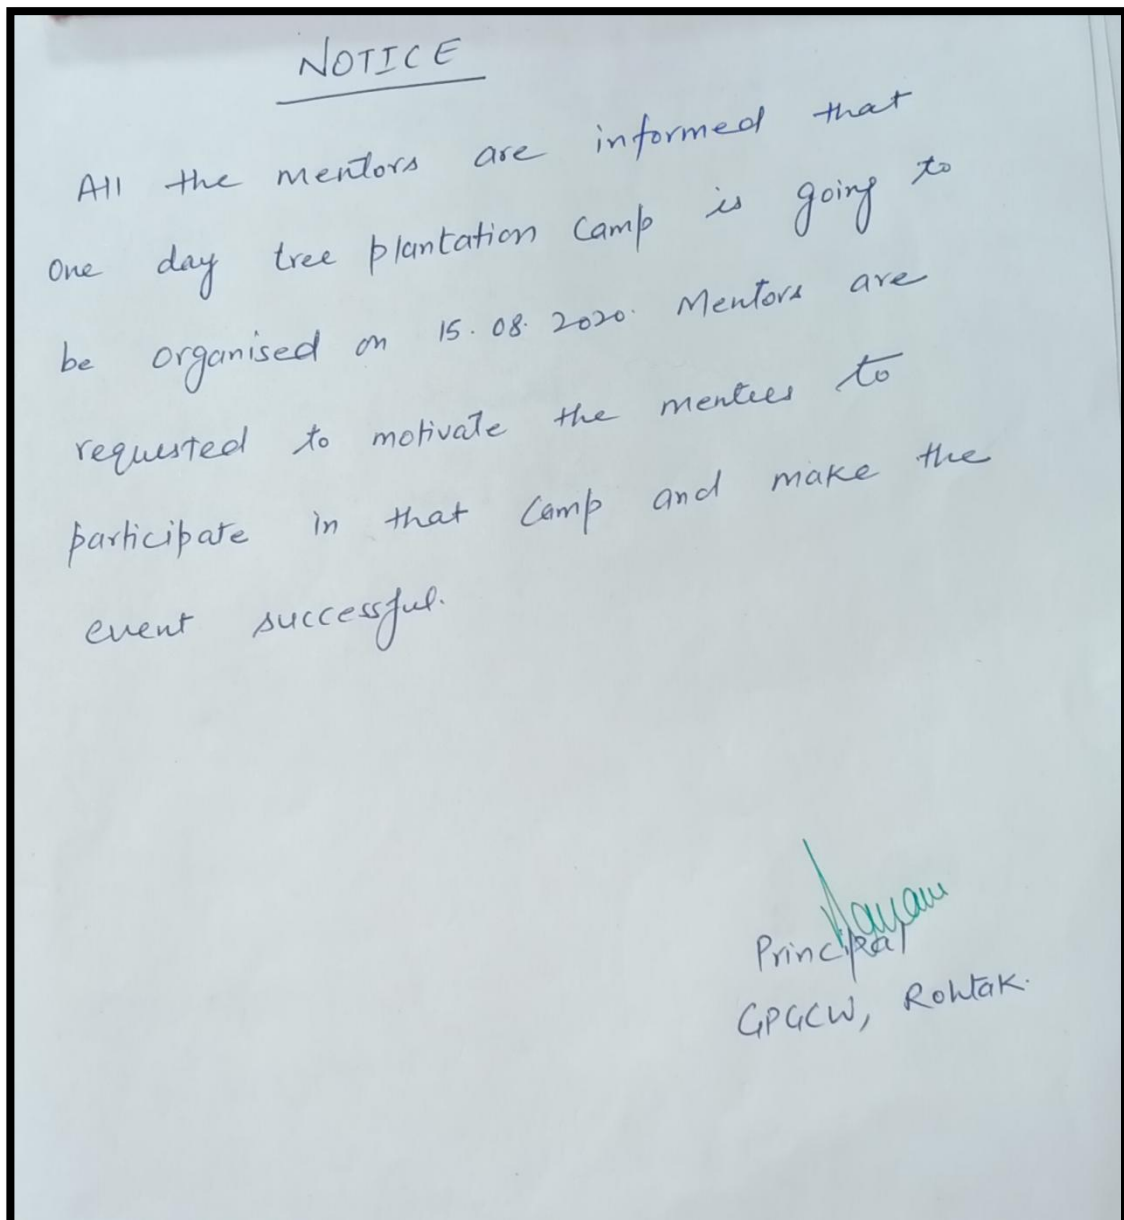 NOTICE
All the mentors are informed that
one day tree plantation camp is going to
be organised on 15.08.2020. Mentors are
requested to motivate the mentees to
participate in that camp and make the
event successful.
Principal
GPGCW, Rohtak.